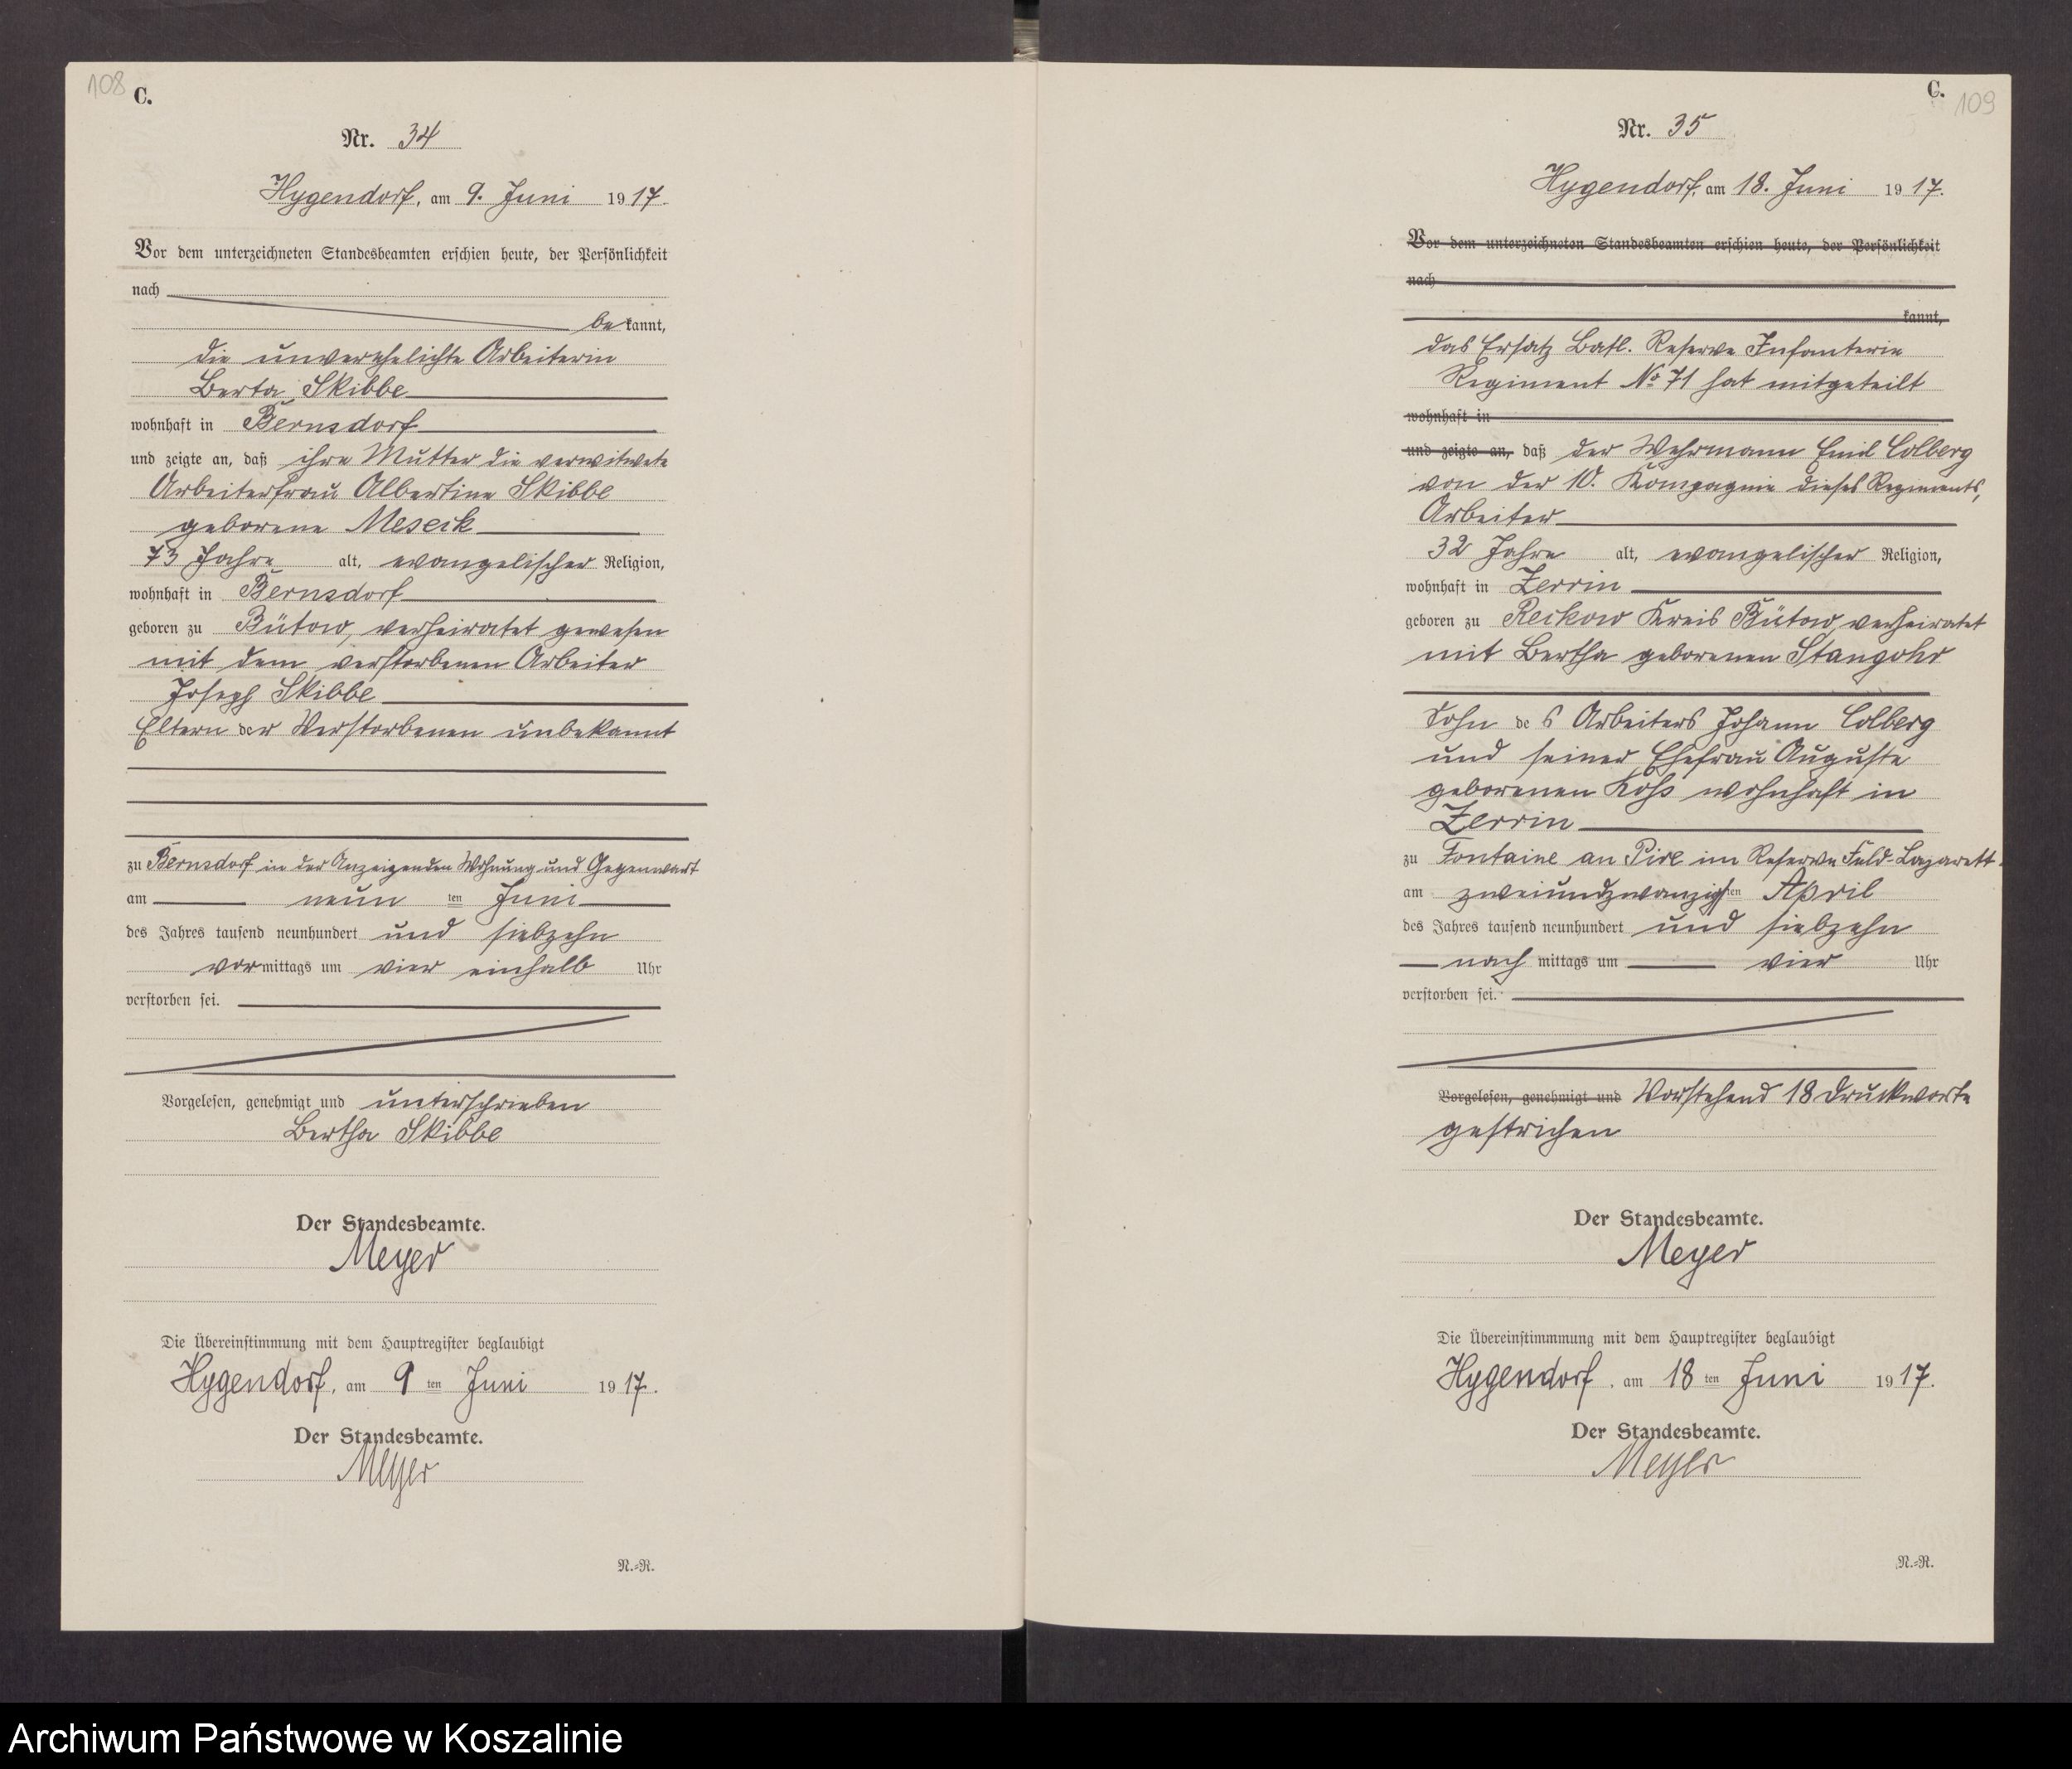 108
C.
Nr. 34
Hygendorf, am 9. Juni 1917.
Vor dem unterzeichneten Standesbeamten erschien heute, der Persönlichkeit
nach
bekannt,
die unverehelichte Arbeiterin
Berta Skibbe
wohnhaft in Bernsdorf
und zeigte an, daß ihre Mutter die verwitwete
Arbeiterfrau Albertine Skibbe
geborene Meseck
73 Jahre alt, evangelischer Religion,
wohnhaft in Bernsdorf
geboren zu Bütow, verheiratet gewesen
mit dem verstorbenen Arbeiter
Joseph Skibbe
Eltern der Verstorbenen unbekannt
zu Bernsdorf in der Anzeigenden Wohnung und Gegenwart
am neunten Juni
des Jahres tausend neunhundert und siebzehn
vormittags um vier einhalb Uhr
verstorben sei.
Vorgelesen, genehmigt und unterschrieben
Bertha Skibbe
Der Standesbeamte.
Meyer
Die Übereinstimmung mit dem Hauptregister beglaubigt
Hygendorf, am 9ten Juni 1917.
Der Standesbeamte.
Meyer
N.=R.
C.
109
Nr. 35
Hygendorf, am 18. Juni 1917.
Vor dem unterzeichneten Standesbeamten erschien heute, der Persönlichkeit
nach
kannt,
das Ersatz Batl. Reserve Infanterie
Regiment No 71 hat mitgeteilt
wohnhaft in
und zeigte an, daß der Wehrmann Emil Colberg
von der 10. Kompagnie dieses Regiments,
Arbeiter
32 Jahre alt, evangelischer Religion,
wohnhaft in Zerrin
geboren zu Reckow Kreis Bütow, verheiratet
mit Bertha geborenen Stangohr
Sohn des Arbeiters Johann Colberg
und seiner Ehefrau Auguste
geborenen wohnhaft in
Zerrin
zu Fontaine an Pire im Reserve Feld-Lazarett.
am zweiundzwanzigsten April
des Jahres tausend neunhundert und siebzehn
nach mittags um vier Uhr
verstorben sei.
Vorgelesen, genehmigt und Vorstehend 18 Druckworte
gestrichen
Der Standesbeamte.
Meyer
Die Übereinstimmung mit dem Hauptregister beglaubigt
Hygendorf, am 18ten Juni 1917.
Der Standesbeamte.
Meyer
N.=R.
Archiwum Państwowe w Koszalinie